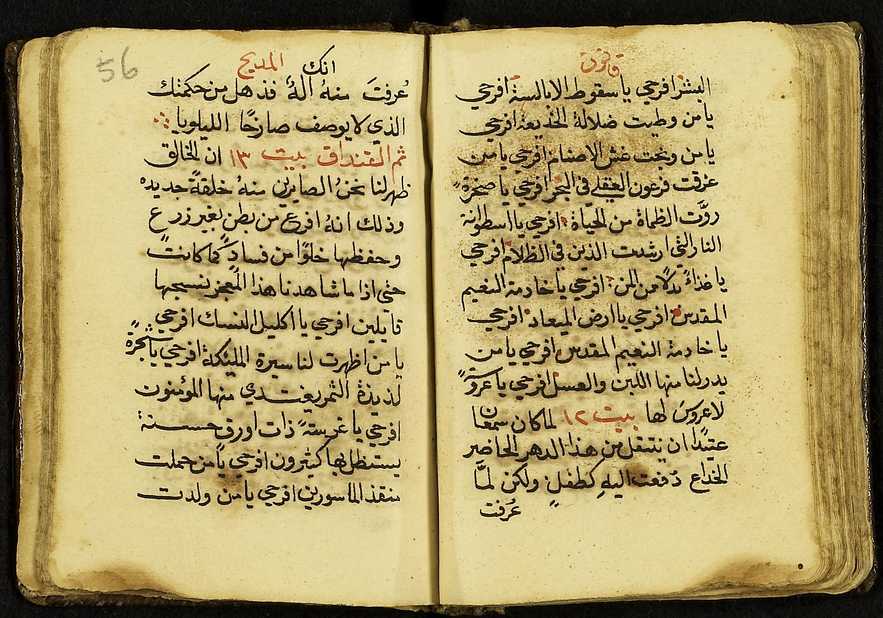 قانون
البشر افرحي يا سقوط الابالسة افرحي
يا من وطيت ضلالة الخديعة افرحي
يا من وبخت غش الاصنام افرحي يا من
غرقت فرعون العقلي في البحر افرحي يا صخرة
روّت الظماة من الحياة افرحي يا اسطوانة
النار التي ارشدت الذين في الظلام افرحي
يا غداءً بدلًا من المن افرحي يا خادمة النعيم
المقدس افرحي يا ارض الميعاد افرحي
يا خادمة النعيم المقدس افرحي يا من
يدر لنا منها اللبن والعسل افرحي يا عروسةً
لا عروس لها بيت ١٢ لما كان سمعان
عتيدًا ان ينتقل من هذا الدهر الحاضر
الخداع دُفعت اليهِ كطفلٍ ولكن لمّا
عُرفت
56
المديح
انك
عُرفتَ منهُ الهٌ فذهل من حكمتك
الذي لا يوصف صارخًا الليلويا
ثم القنداق بيت ١٣ ان الخالق
ظهر لنا نحنُ الصايرين منهُ خلقةً جديده
وذلك انهُ افرع من بطن بغير زرع
وحفظها خلوًا من فسادٍ كما كانت
حتى اذا ما شاهدنا هذا المعجز نسبحها
قايلين افرحي يا اكليل النسك افرحي
يا من اظهرت لنا سيرة المليكة افرحي يا شجرةً
لذيذة الثمر يغتدي منها المؤمنون
افرحي يا غرسةً ذات اورق حسنة
يستظل بها كثيرون افرحي يا من حملت
منقذ الماسورين افرحي يا من ولدت